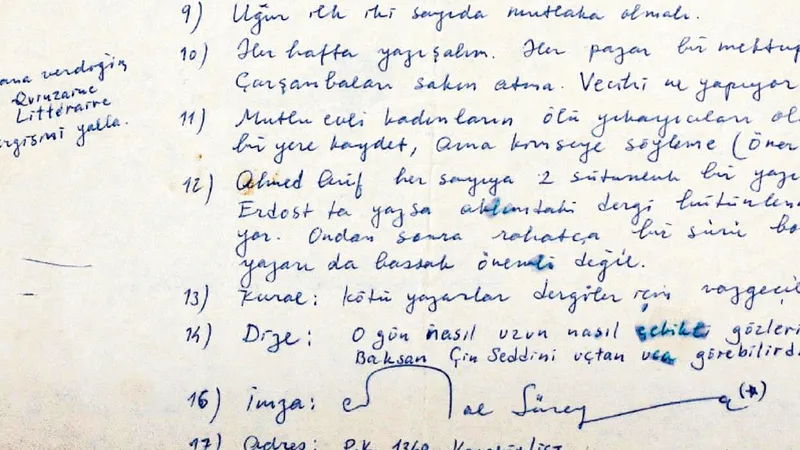 9) Uğur ilk iki sayıda mutlaka olmalı.
10) Her hafta yazışalım. Her pazar bir mektup
Çarşambaları sakın atma. Vecihi ne yapıyor
ana verdiğin
Quinzaine
Littéraire
ergisini yolla.
11) Mutlu evli kadınların ölü yıkayıcıları ol
bir yere kaydet, ama kimseye söyleme (öner
12) Ahmed Arif her sayıya 2 sütunluk bir yazı
Erdost ta yazsa aklımdaki dergi bütünlen
yor. Ondan sonra rahatça bir sürü bo
yazarı da bassak önemli değil.
13) Kural: kötü yazarlar dergiler için vazgeçil
14) Dize: O gün nasıl uzun nasıl çekikti gözleri
Baksan Çin Seddini uçtan uca görebilird
16) İmza: Cemal Süreya (*)
17) Adres: P.K. 1340